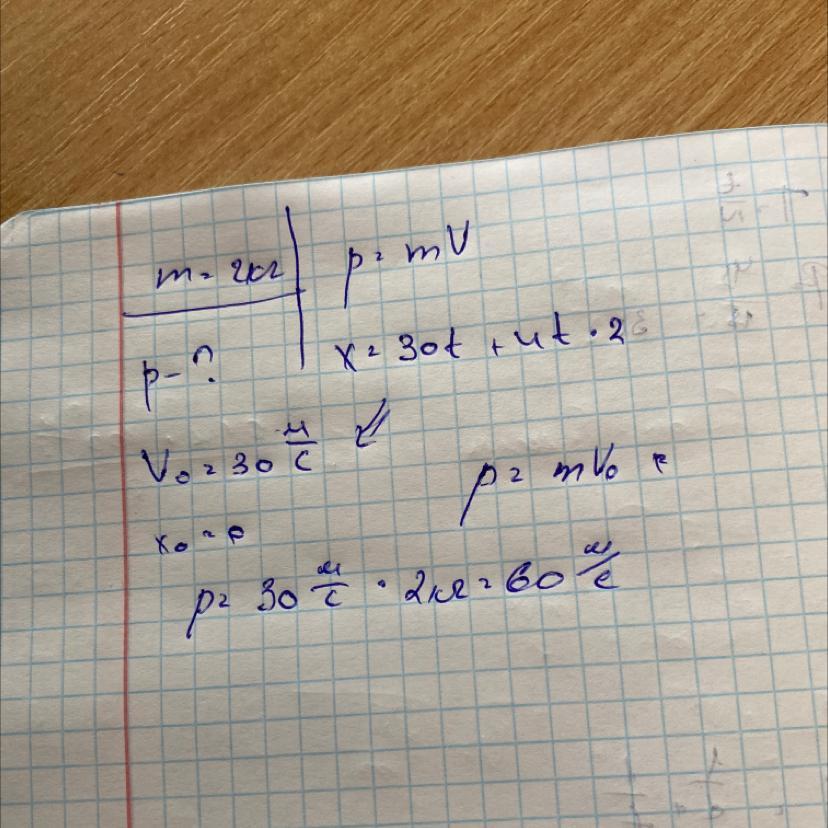 m = 2кг
p = mV
p - ?
x = 30t + 4t · 2
V₀ = 30 м/с
p = mV₀ =
x₀ = 0
p = 30 м/с · 2кг = 60 м/с